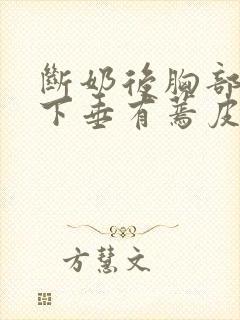 斷奶後胸部
下垂有蔫皮
方慧文